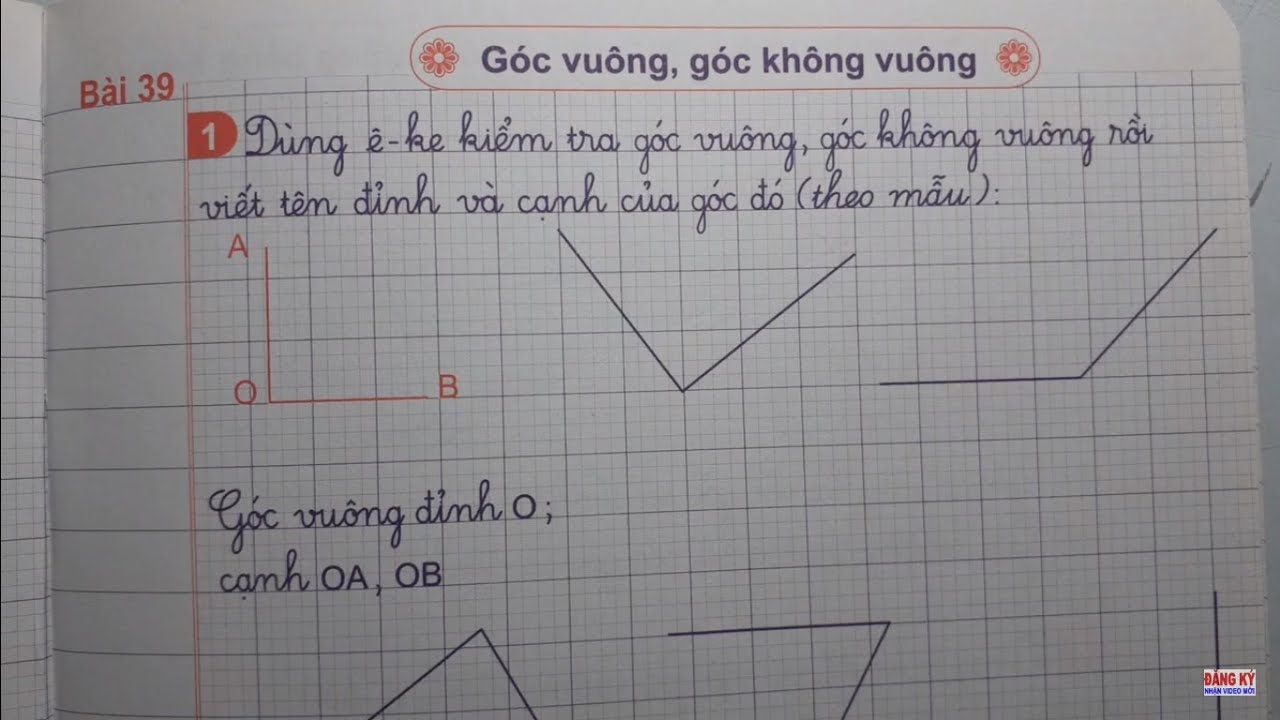 Góc vuông, góc không vuông
Bài 39
1 Dùng ê-ke kiểm tra góc vuông, góc không vuông rồi
viết tên đỉnh và cạnh của góc đó (theo mẫu):
A
O
B
Góc vuông đỉnh O;
cạnh OA, OB
ĐĂNG KÝ
NHẬN VIDEO MỚI